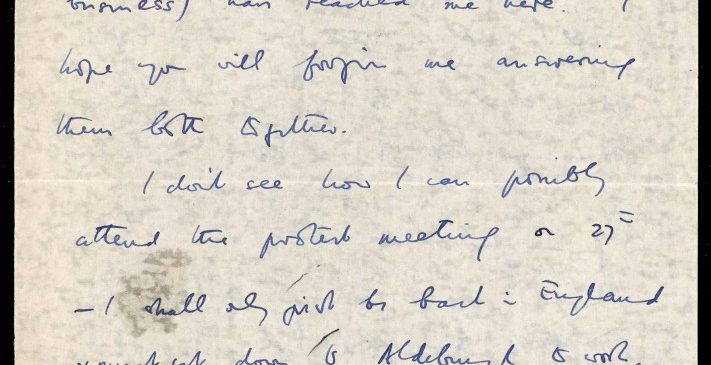 business) has reached me here. I
hope you will forgive me answering
them both together.
I don't see how I can possibly
attend the protest meeting on 27th
— I shall only just be back in England
down to Aldeburgh to work,